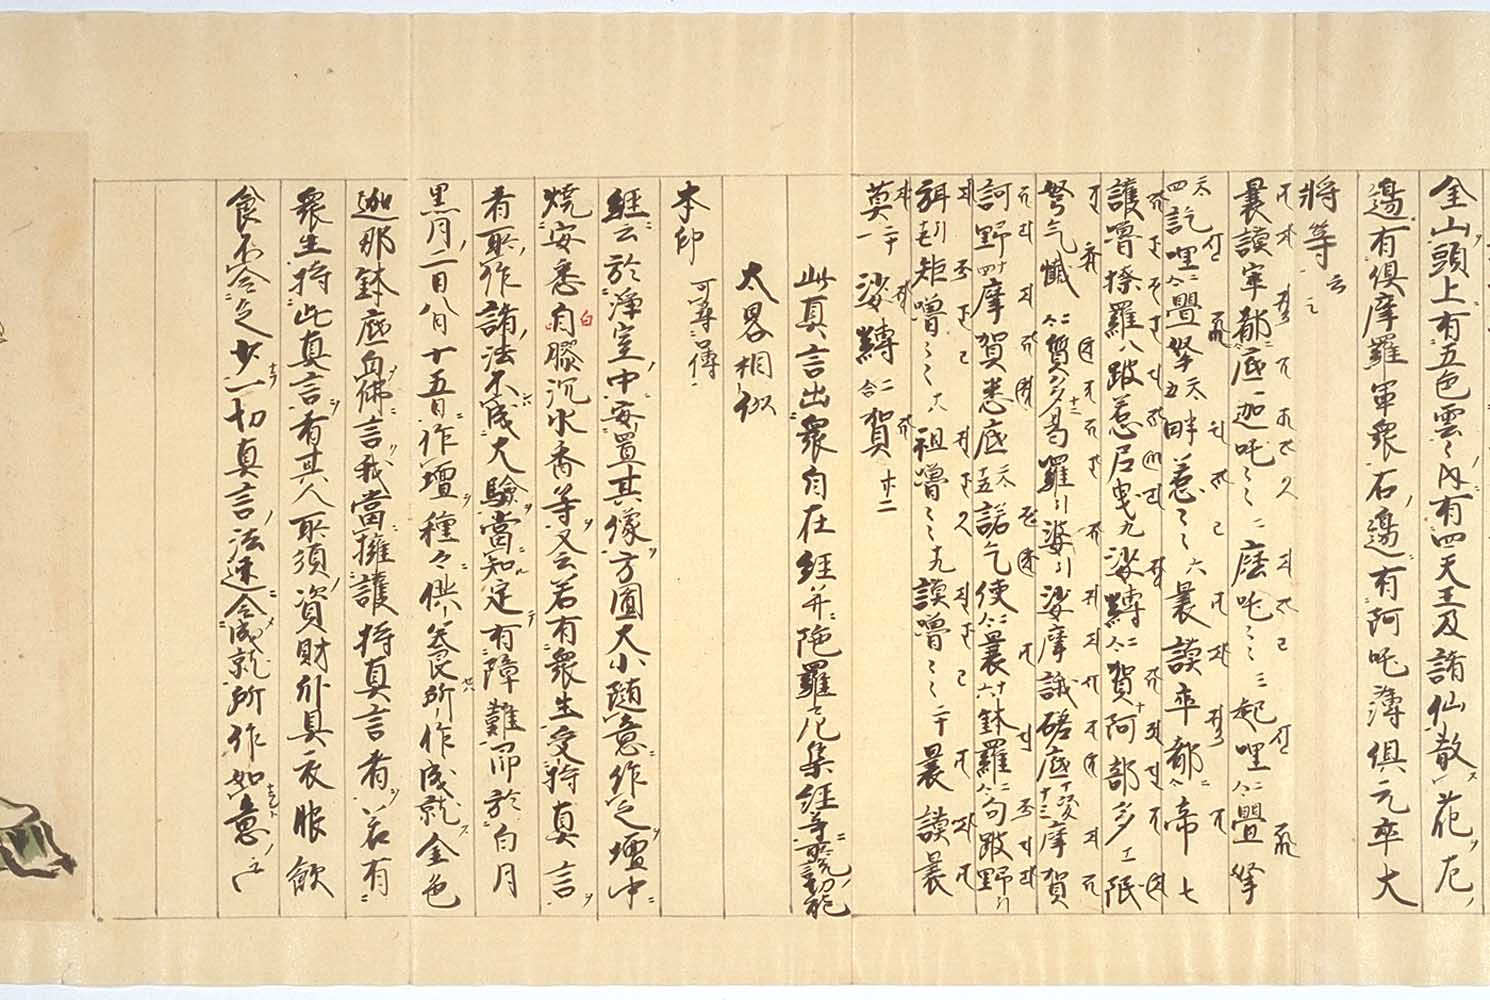 金山頭上有五色雲〻內有四天王及諸仙散花左
邊有俱摩羅軍衆右邊有阿吒薄俱元率大
將等云〻
曩謨窣都底一迦吒〻〻二麼吒〻〻三起哩二合畳拏
四訖哩二合畳拏五畔惹〻〻六曩謨率都帝七
護嚕捺羅八跛惹尼曳九娑縛二合賀十阿部多工泯
弩气懺二合質多十二曷羅引娑引娑摩誐磋底十三摩賀
訶野十四摩賀悉底十五諾气使二合曩十六鉢羅二合句跛野引
矩嚕〻〻十八祖嚕〻〻十九謨嚕〻〻二十曩謨曩
莫二十一娑縛二合賀廿二
此真言出衆自在經并陁羅尼集經等
大畧相似
本印 可尋之傳
經云於淨室中安置其像方圓大小隨意作之壇中
燒安悉自膠沉水香等又云若有衆生受持真言
白
者所作諸法不成大驗當知定有障難即於白月
黑月一日八日十五日作壇種々供養所作成就金色
迦那鉢底白佛言我當擁護持真言者若有
衆生持此真言者其人所須資財外具衣服飲
食不令乏少一切真言法速令成就所作如意云